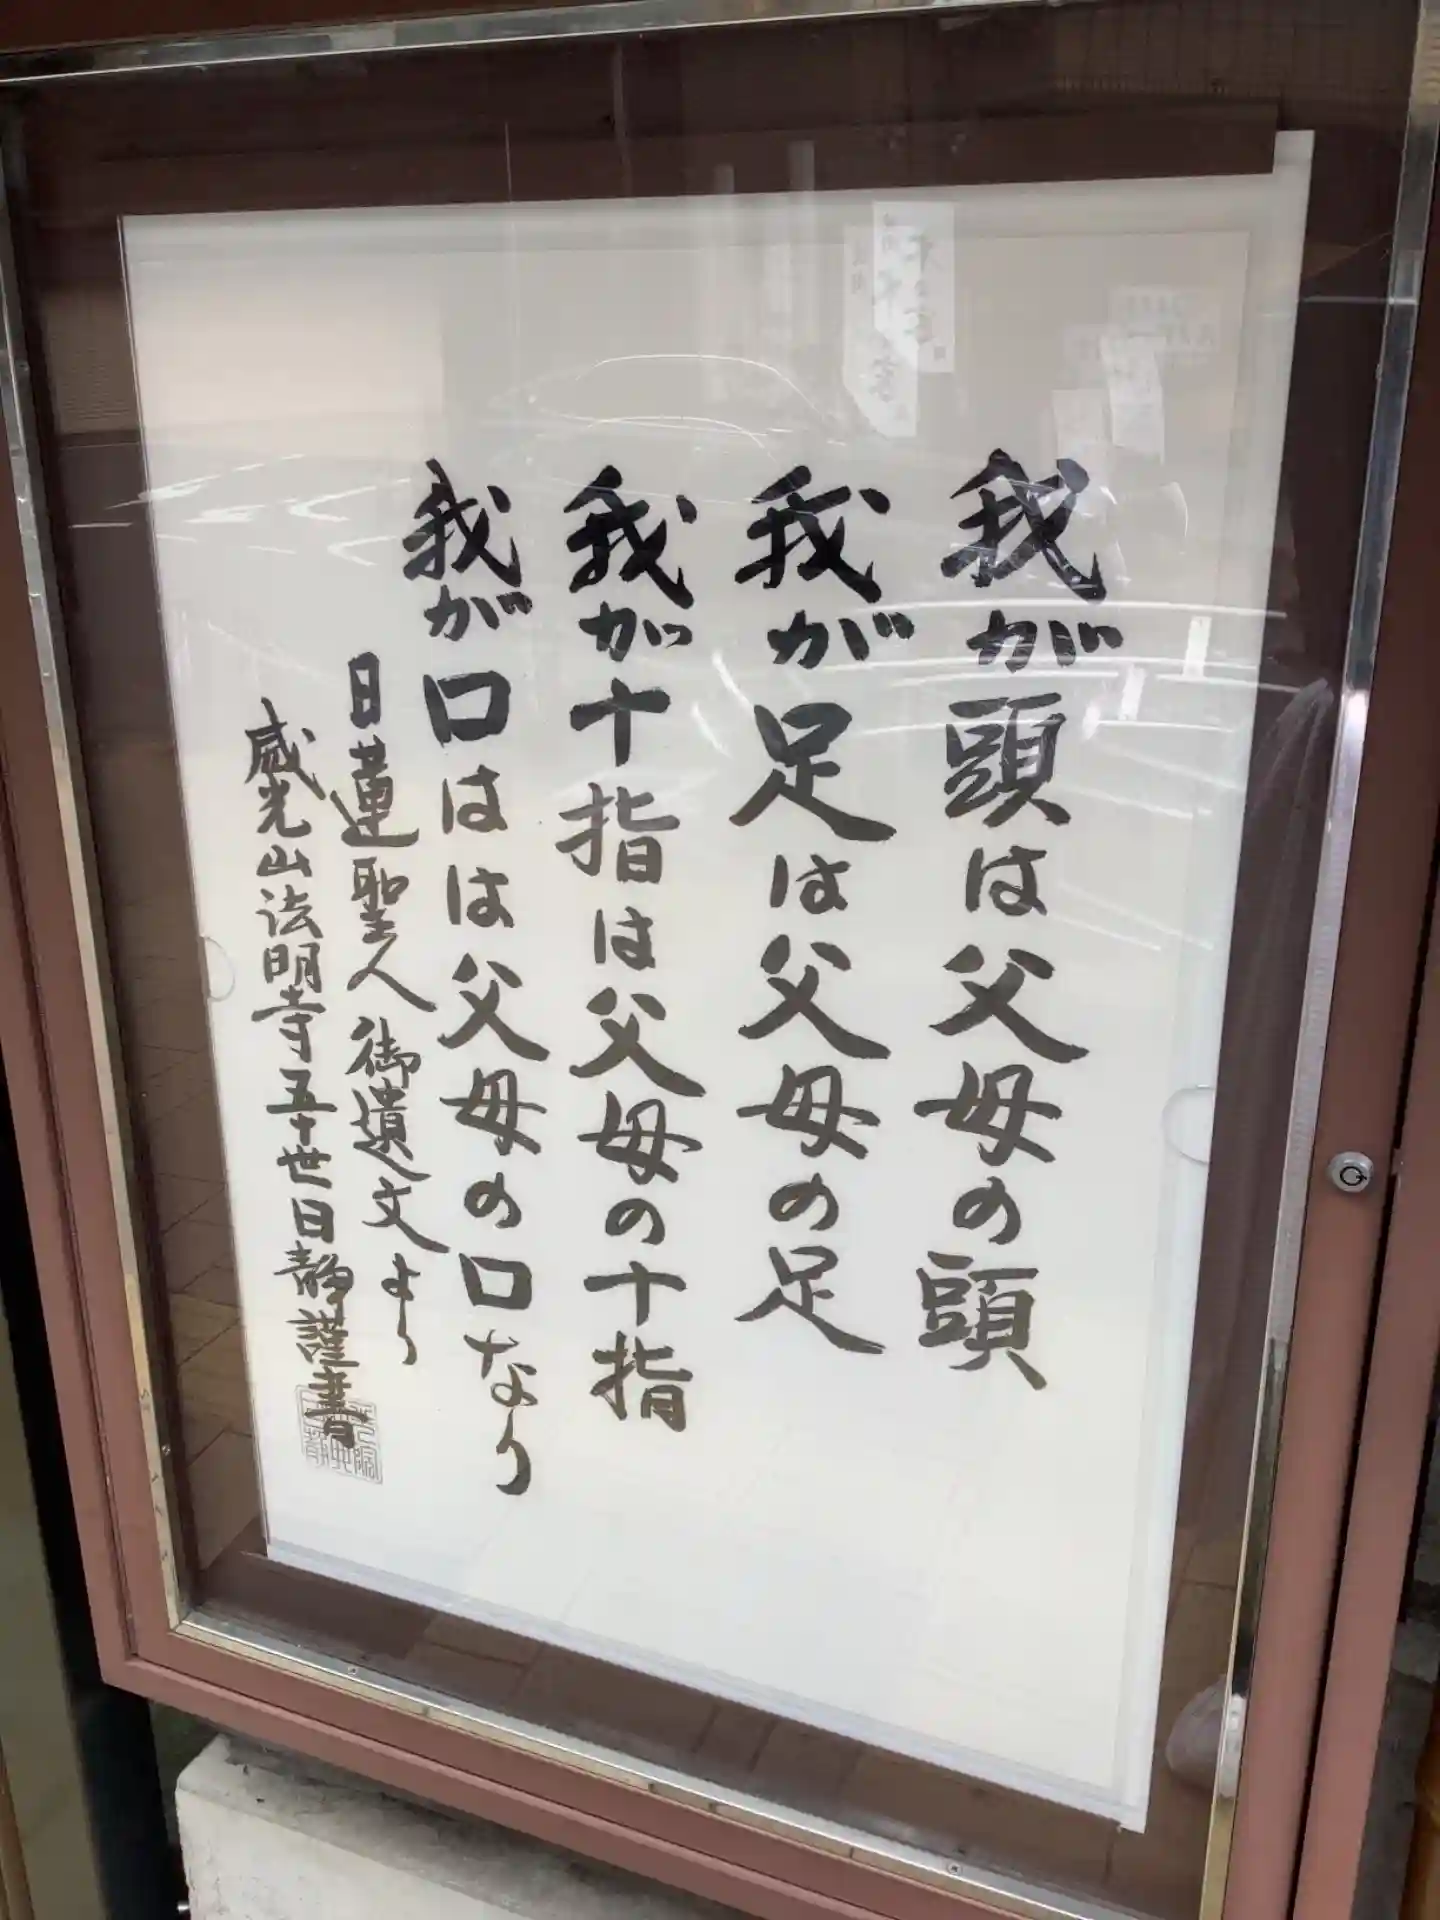 我が頭は父母の頭
我が足は父母の足
我が十指は父母の十指
我が口はは父母の口なり
日蓮聖人御遺文より
威光山法明寺五十世日静謹書